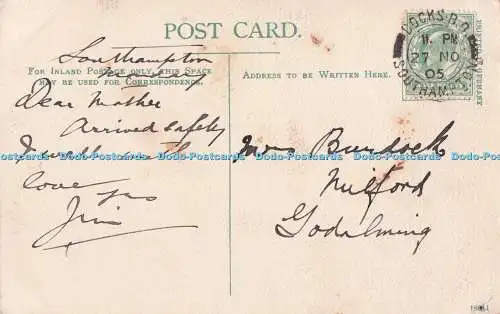 POST CARD.
DOCKS B.O.
11. PM
27 NO
05
SOUTHAMPTON
FOR INLAND POSTAGE ONLY, THIS SPACE
MAY BE USED FOR CORRESPONDENCE.
ADDRESS TO BE WRITTEN HERE.
Southampton
Dear Mother
Arrived safely
& well with
love
Jim
Mrs Burdock
Milford
Godalming
Dodo-Postcards Dodo-Postcards Dodo-Postcards Dodo-Postcards Dodo-Postcards Dodo-Postcards